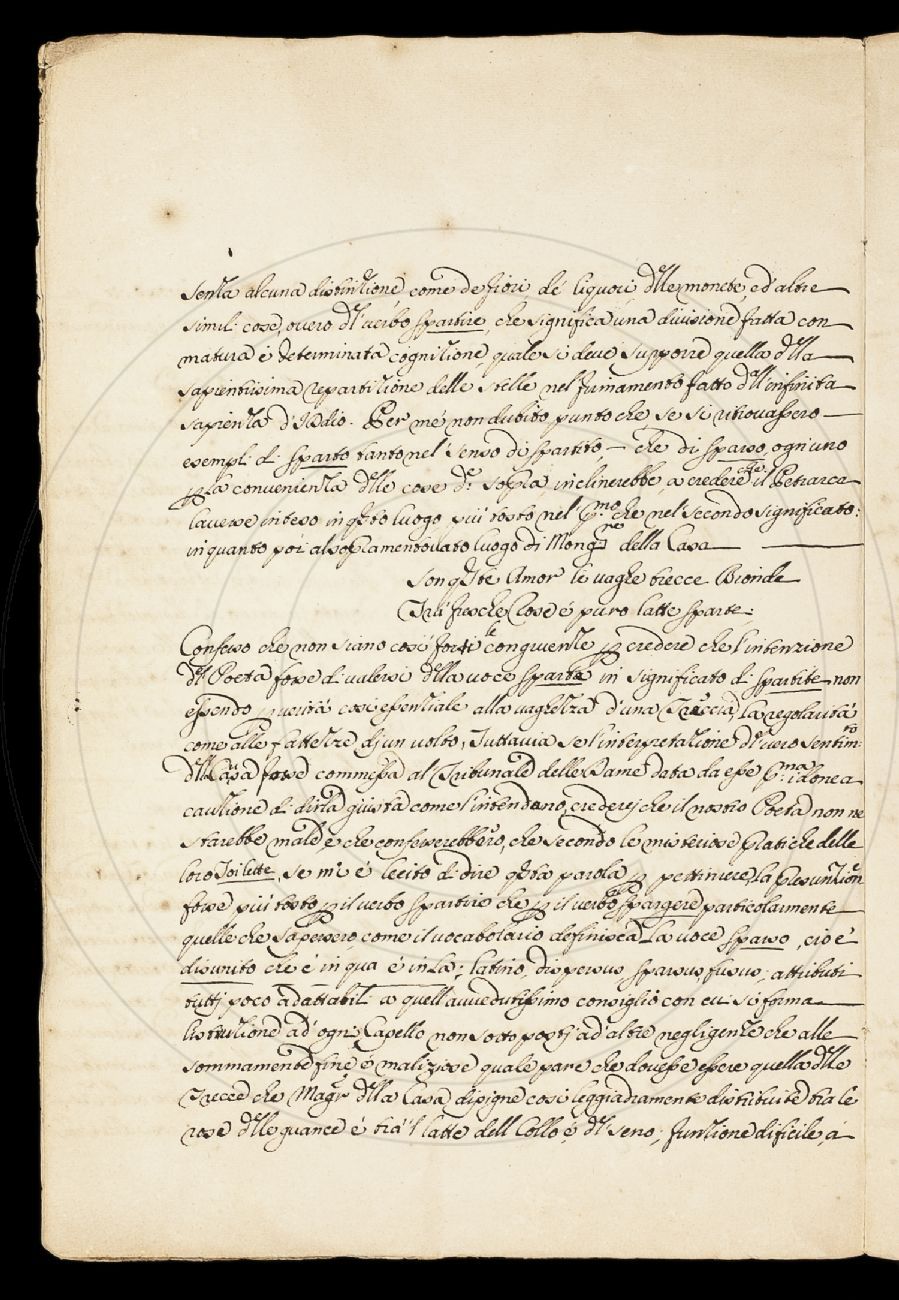 senza alcuna distinzione come de fiori de' liquori, d'lle monete, ed'altre
simili cose, overo d'l verbo spartire, che significa una divisione fatta con
matura è determinata cognizione quale si deve supporre quella d'lla
sapientissima repartizione delle stelle nel firmamento fatto d'll'infinita
sapienza d'Iddio. Per me non dubito punto che se si ritrovassero
esempli di sparto tanto nel senso di spartito – che di sparso, ogn'uno
p la convenienza d'lle cose d.e sopra, inclinerebbe, a credere che il Petrarca
l'avesse inteso in q'sto luogo più tosto nel p.mo che nel secondo significato:
in quanto poi al sopramentovato luogo di Mong.re della Casa
Son q'ste Amor le vaghe trecce Bionde
Trà fresche Rose é puro latte sparte;
Confesso che non siano così forti le congruenze p credere che l'intenzione
d'l Poeta fosse di valersi d'lla voce sparte in significato di spartite non
essendo p verità così essenziale alla vaghezza d'una Treccia, la regolarità
come alle fattezze di un volto; Tuttavia se l'interpretazione d'l vero sentim.to
d'l Casa fosse commessa al Tribunale delle Dame data da esse p.ma idonea
cauzione di dirla giusta come l'intendono, crederej che il nostro Poeta non ne
starebbe male, e che confesserebbero, che secondo le misteriose pratiche delle
loro Toilette, se mi é lecito di dire q'sta parola, p pettiniere, la presunzion
fosse più tosto p il verbo spartire che p il verbo spargere particolarmente
quelle che sapessero come il vocabolario definisca la voce sparso, cio é
disunito che é in qua é in la; latino, dispersus, sparsus, fusus; attributi
tuttj poco adattabili a quell'avvedutissimo consiglio con cui si forma
listruzione ad ogni Capello non sottopostj ad'altre negligenze che alle
sommamente fine é maliziose quale pare che dovesse essere quella d'lle
Trecce che Mag.r d'lla Casa dipigne così leggiadramente distribuite tra le
rose d'lle guance é trà 'l latte dell Collo é, d'l seno; funzione dificile, á